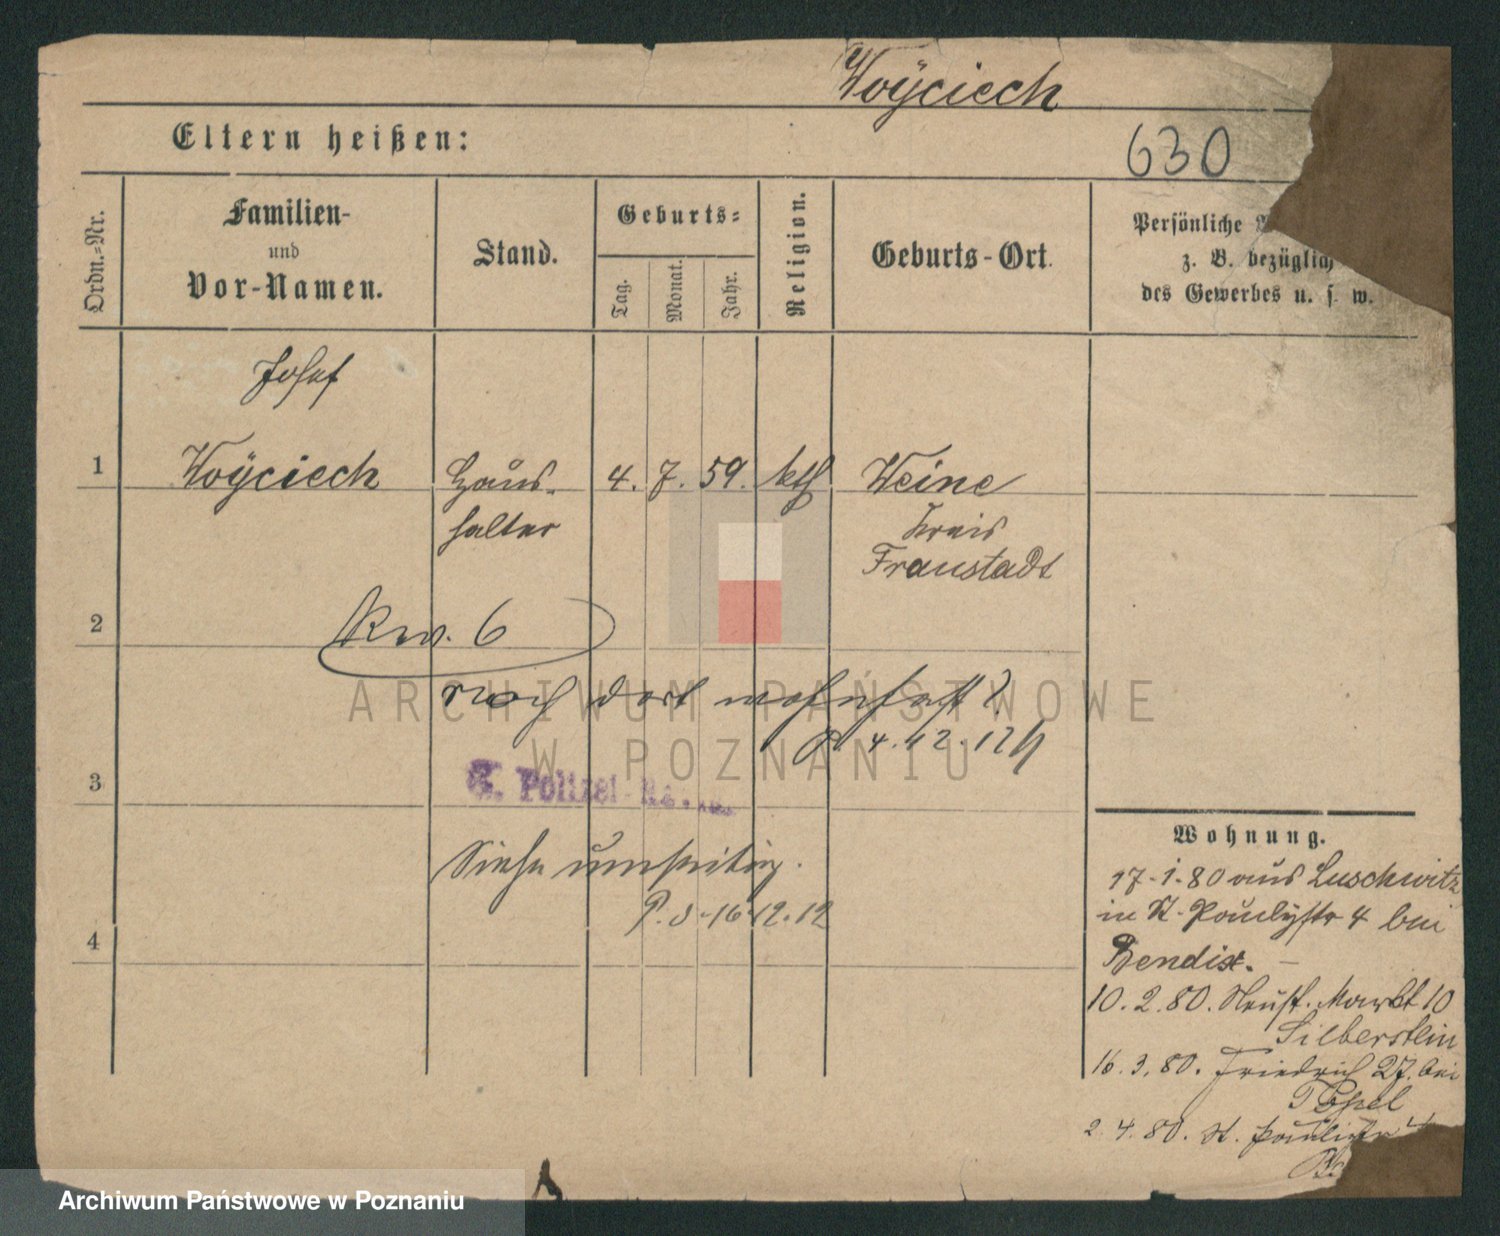 Woÿciech
Eltern heißen:
630
Ordn.-Nr.
Familien-
und
Vor-Namen.
Stand.
Geburts-
Tag.
Monat.
Jahr.
Religion.
Geburts-Ort.
Persönliche
z. B. bezüglich
des Gewerbes u. s. w.
Josef
1 Woÿciech Haus- 4. 7. 59. kth Weine
halter Kreis
Fraustadt
2 Rw. 6
noch dort wohnhaft?
P. 4.12.12
ARCHIWUM PAŃSTWOWE
W POZNANIU
3 K. Polizei
Siehe umseitig.
P. 8. 16.12.12
4
Wohnung.
17.1.80 aus Luschwitz
in St. Paulystr 4 bei
Bendix.
10.2.80. Neust. Markt 10
Silberstein
16.3.80. Friedrich 27. bei
2.4.80. St. Paulistr 4
Archiwum Państwowe w Poznaniu